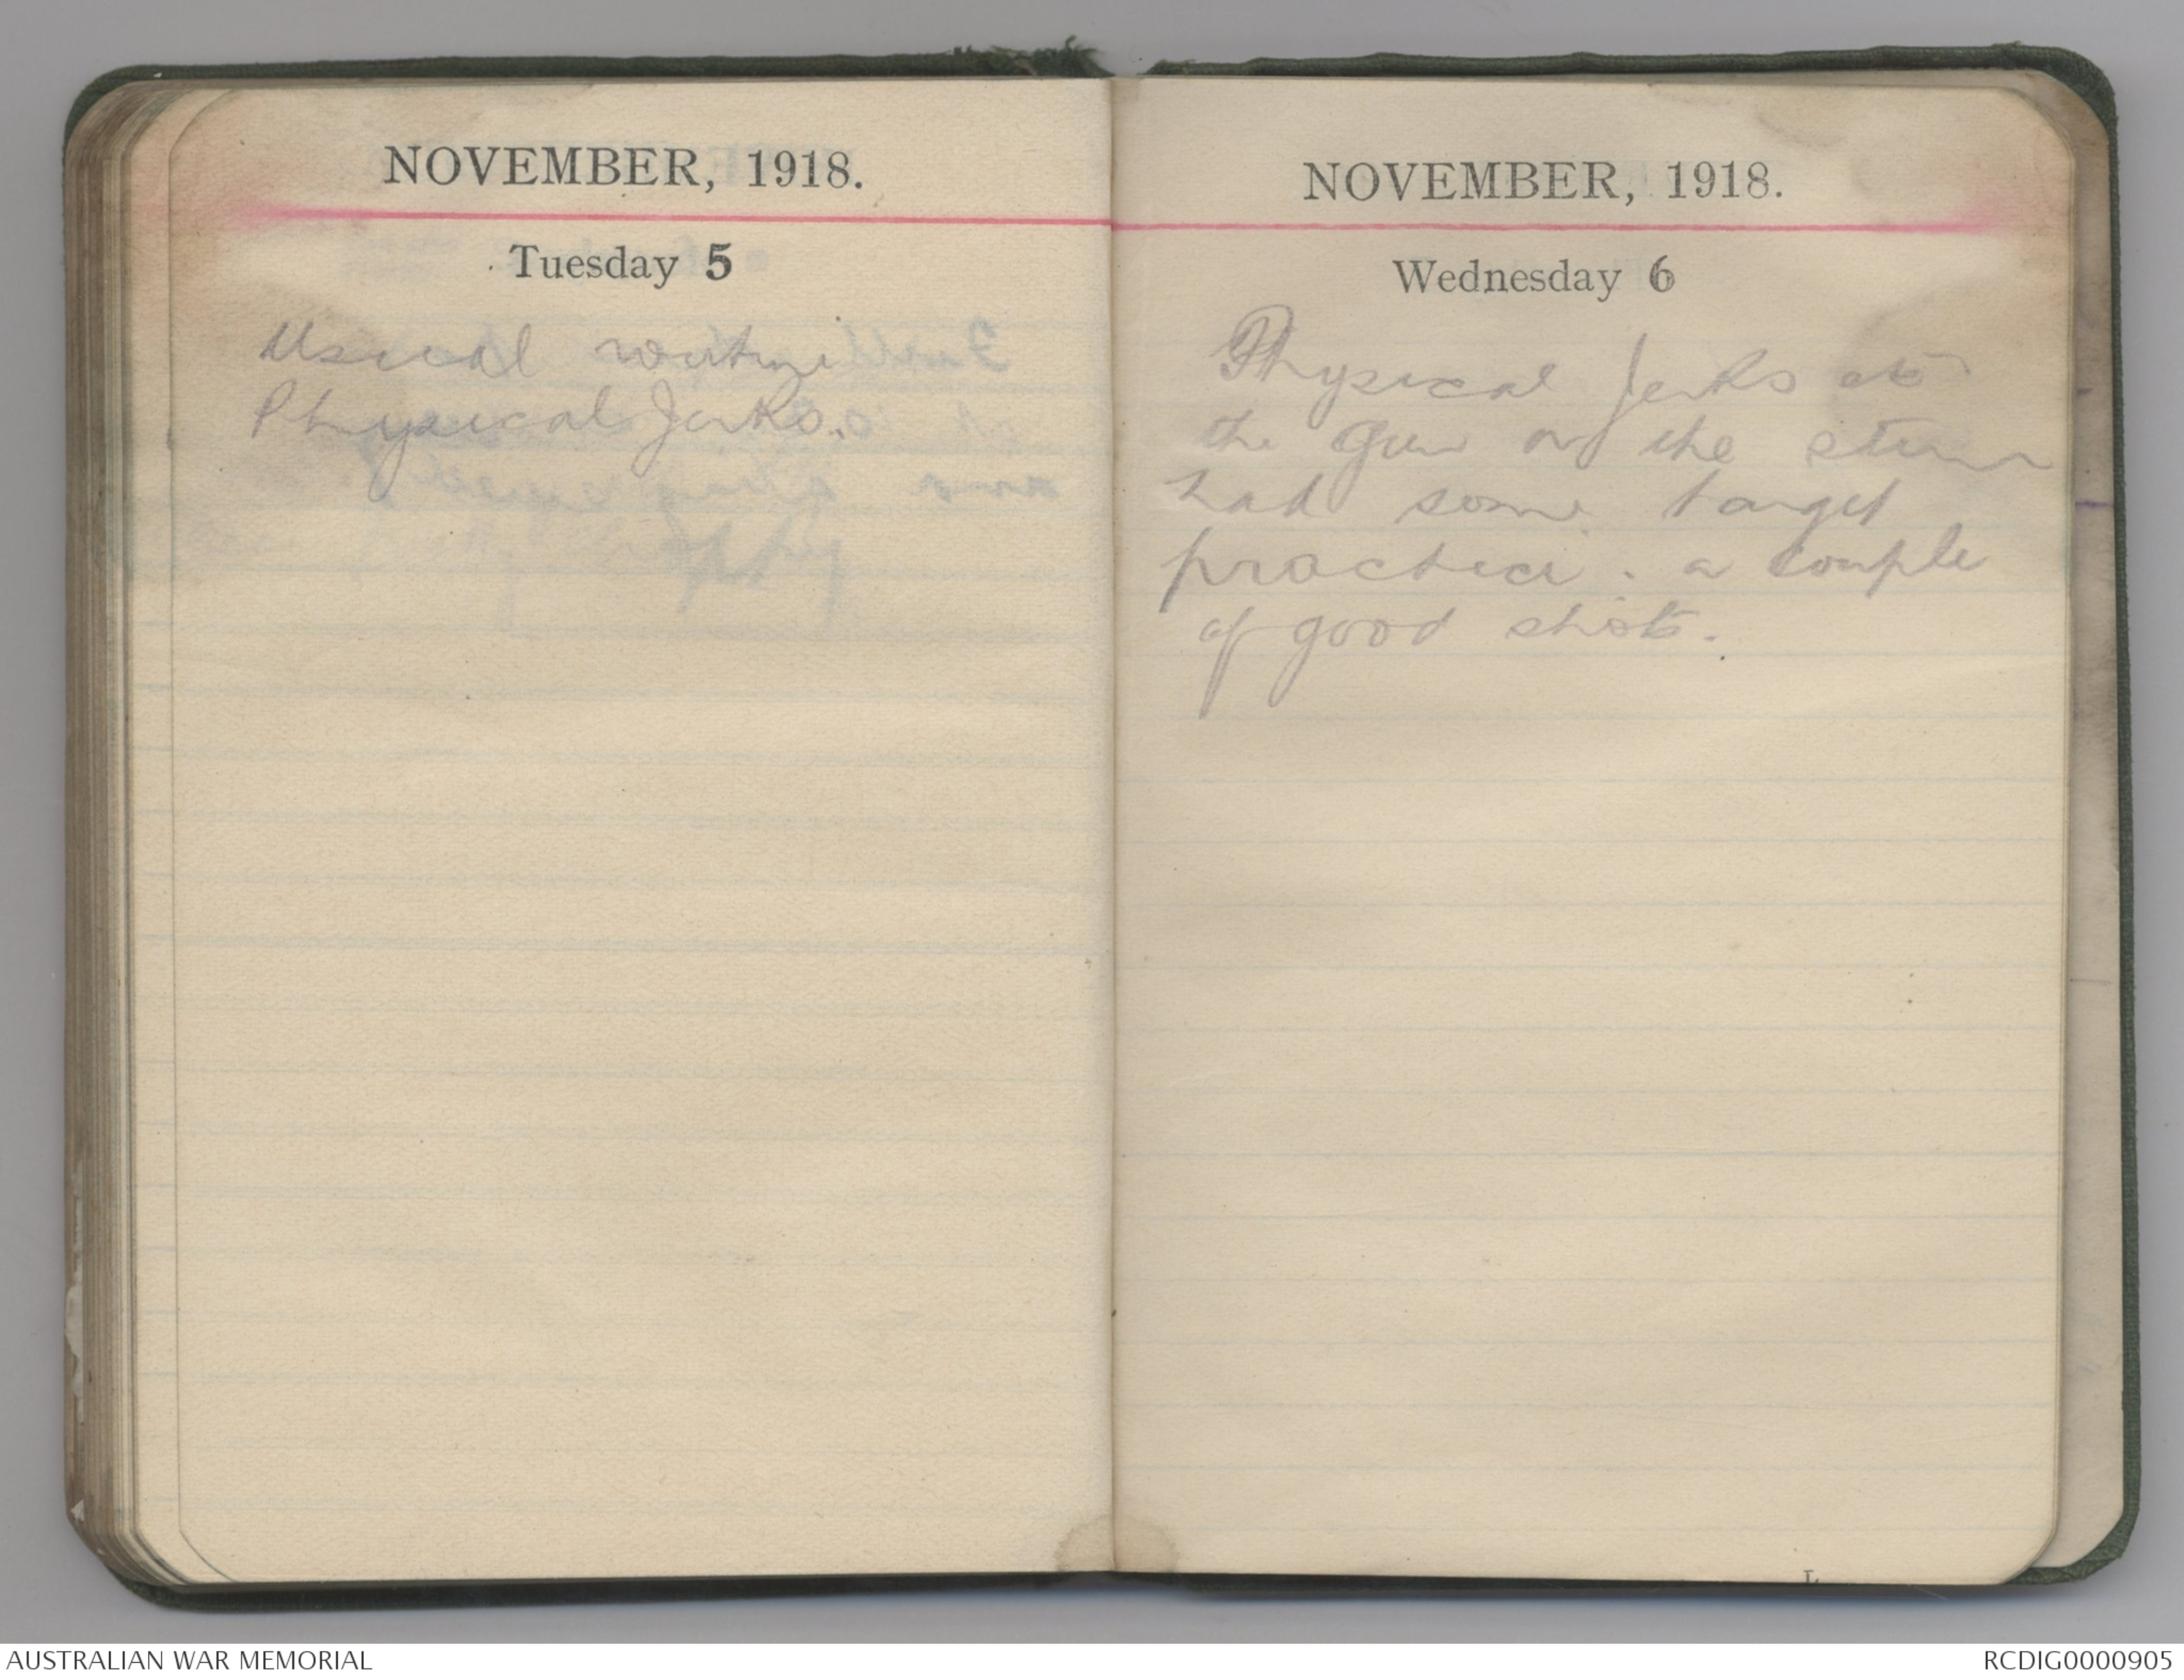 NOVEMBER, 1918.
Tuesday 5
Usual routine
Physical Jerks.
NOVEMBER, 1918.
Wednesday 6
Physical Jerks etc
the Gun on the stern
had some target
practice. a couple
of good shots.
AUSTRALIAN WAR MEMORIAL
RCDIG0000905